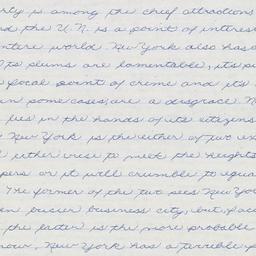 rty is among the chief attractions
nd the U.N. is a point of interest
entire world. New York also has a
to plums are lamentable; it's p
focal point of crime and it's
in some cases, are a disgrace. N
lies in the hands of its citizens
New York is the either of two ex
either wise to meet the heights
pers or it will crumble to equa
The former of the two sees New Yo
en busier business city, but, fac
the latter is the more probable
now, New York has a terrible p